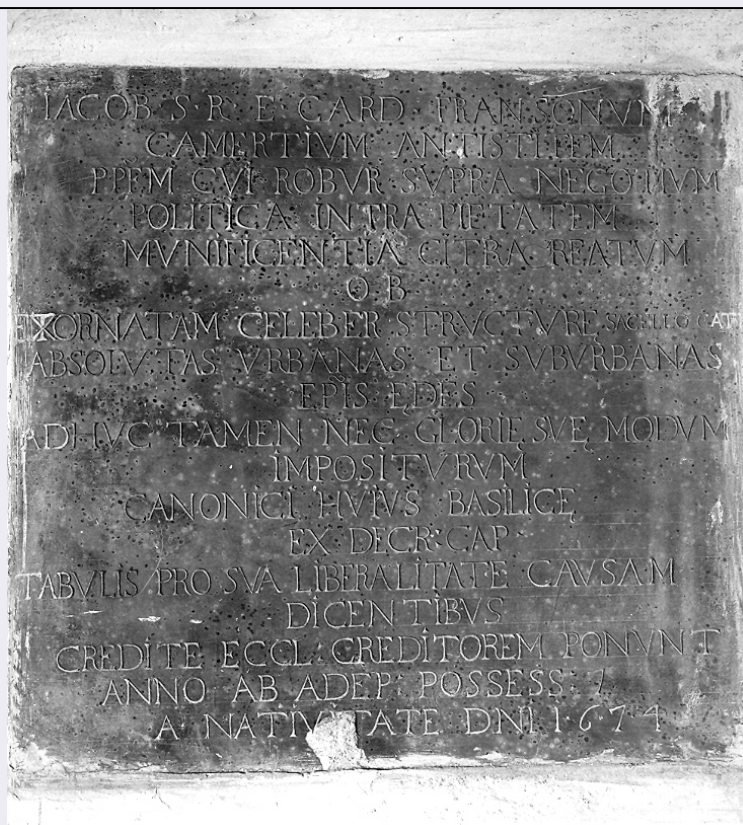 IACOB·S·R·E·CARD FRANSONVM
CAMERTIVM ANTISTITEM
PPEM CVI ROBVR SVPRA NEGOTIVM
POLITICA INTRA PIETATEM
MVNIFICENTIA CITRA REATVM
OB
EXORNATAM CELEBER STRVCTVRE SACELLO CAT
ABSOLVTAS VRBANAS ET SVBVRBANAS
EPIS EDES
ADHVC TAMEN NEC GLORIĘ SVĘ MODVM
IMPOSITVRVM
CANONICI HVIVS BASILICĘ
EX DECR·CAP·
TABVLIS PRO SVA LIBERALITATE CAVSAM
DICENTIBVS
CREDITE ECCL· CREDITOREM PONVNT
ANNO AB ADEP· POSSESS· 7
A NATIVITATE DNI 1·6·7·4